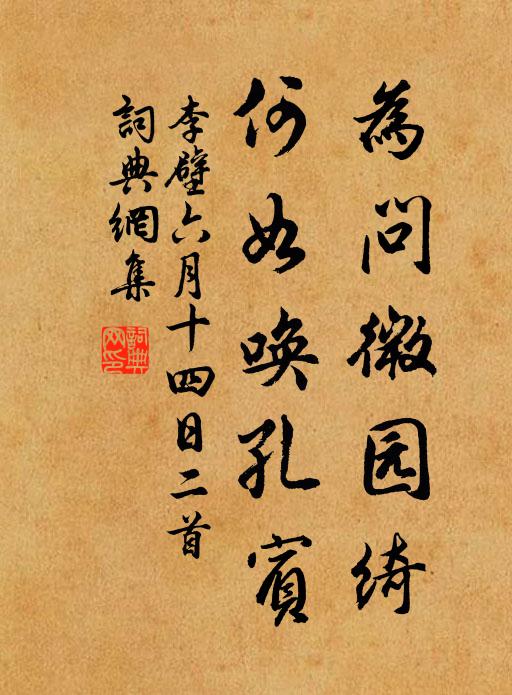 為問微园綺
何如唤孔賓
李壁六月十四日二首
詞典網集
詞典网印